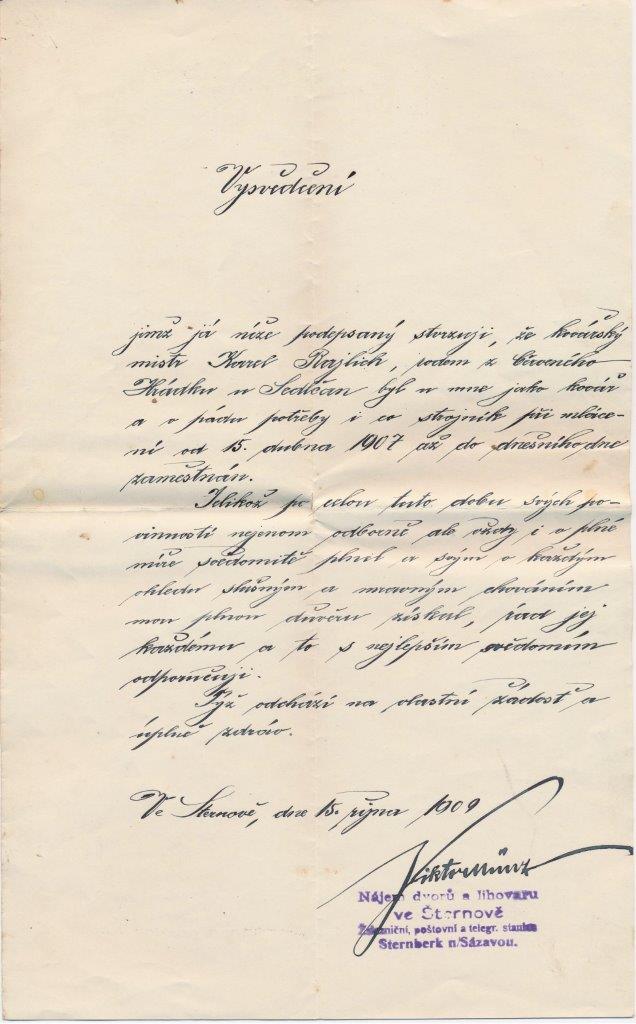 Vysvědčení
jímž já níže podepsaný stvrzuji, že kovářský
mistr Karel Rajlich, rodem z Červeného
Hrádku u Sedlčan byl u mne jako kovář
a v pádu potřeby i co strojník při mláce-
ní od 15. dubna 1907 až do dnešního dne
zaměstnán.
Jelikož po celou tuto dobu svých po-
vinností nejenom odborně ale vždy i v plné
míře svědomitě plnil a svým v každým
ohledu slušným a mravným chováním
mou plnou důvěru získal, řád jej
každému a to s nejlepším svědomím
odporučuji.
Týž odchází na vlastní žádosť a
úplně zdráv.
Ve Šternově, dne 15. října 1909
Viktor Münz
Nájem dvorů a lihovaru
ve Šternově
Železniční, poštovní a telegr. stanice
Sternberk n/Sázavou.